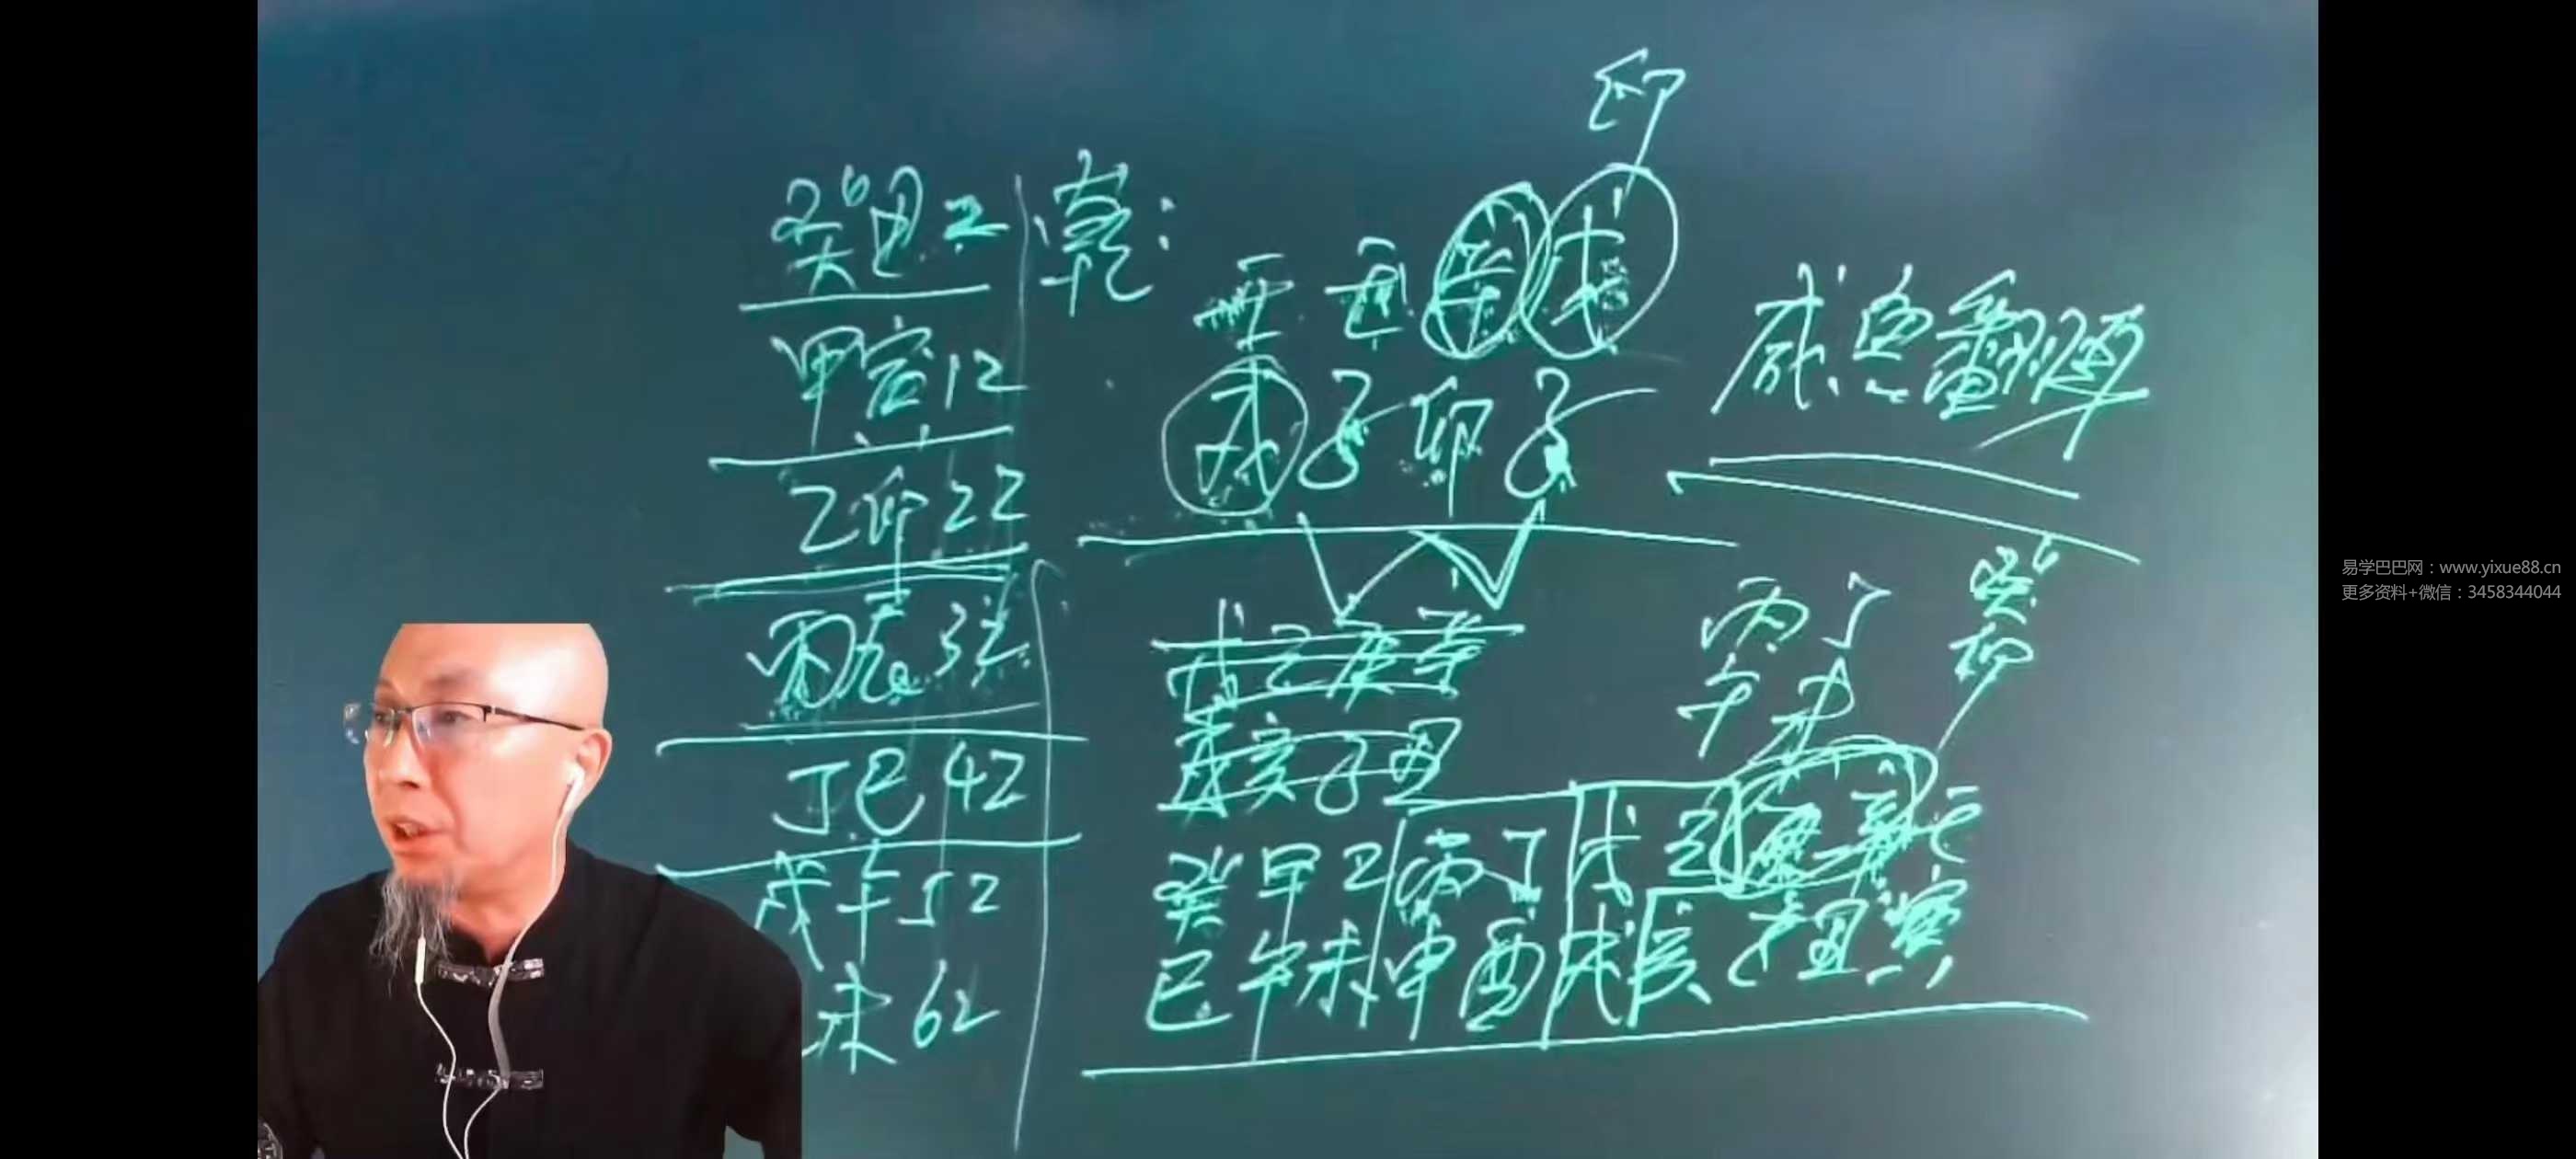 印
癸丑 2
乾:
甲寅 12
壬 壬 辛 戊
戌 子 卯 子
乙卯 22
丙辰 32
丁巳 42
戊午 52
未 62
戊己庚辛
戌亥子丑
丙丁
午未
癸
卯
癸甲乙丙丁戊己庚辛壬
巳午未申酉戌亥子丑寅
易学巴巴网：www.yixue88.cn
更多资料+微信：3458344044